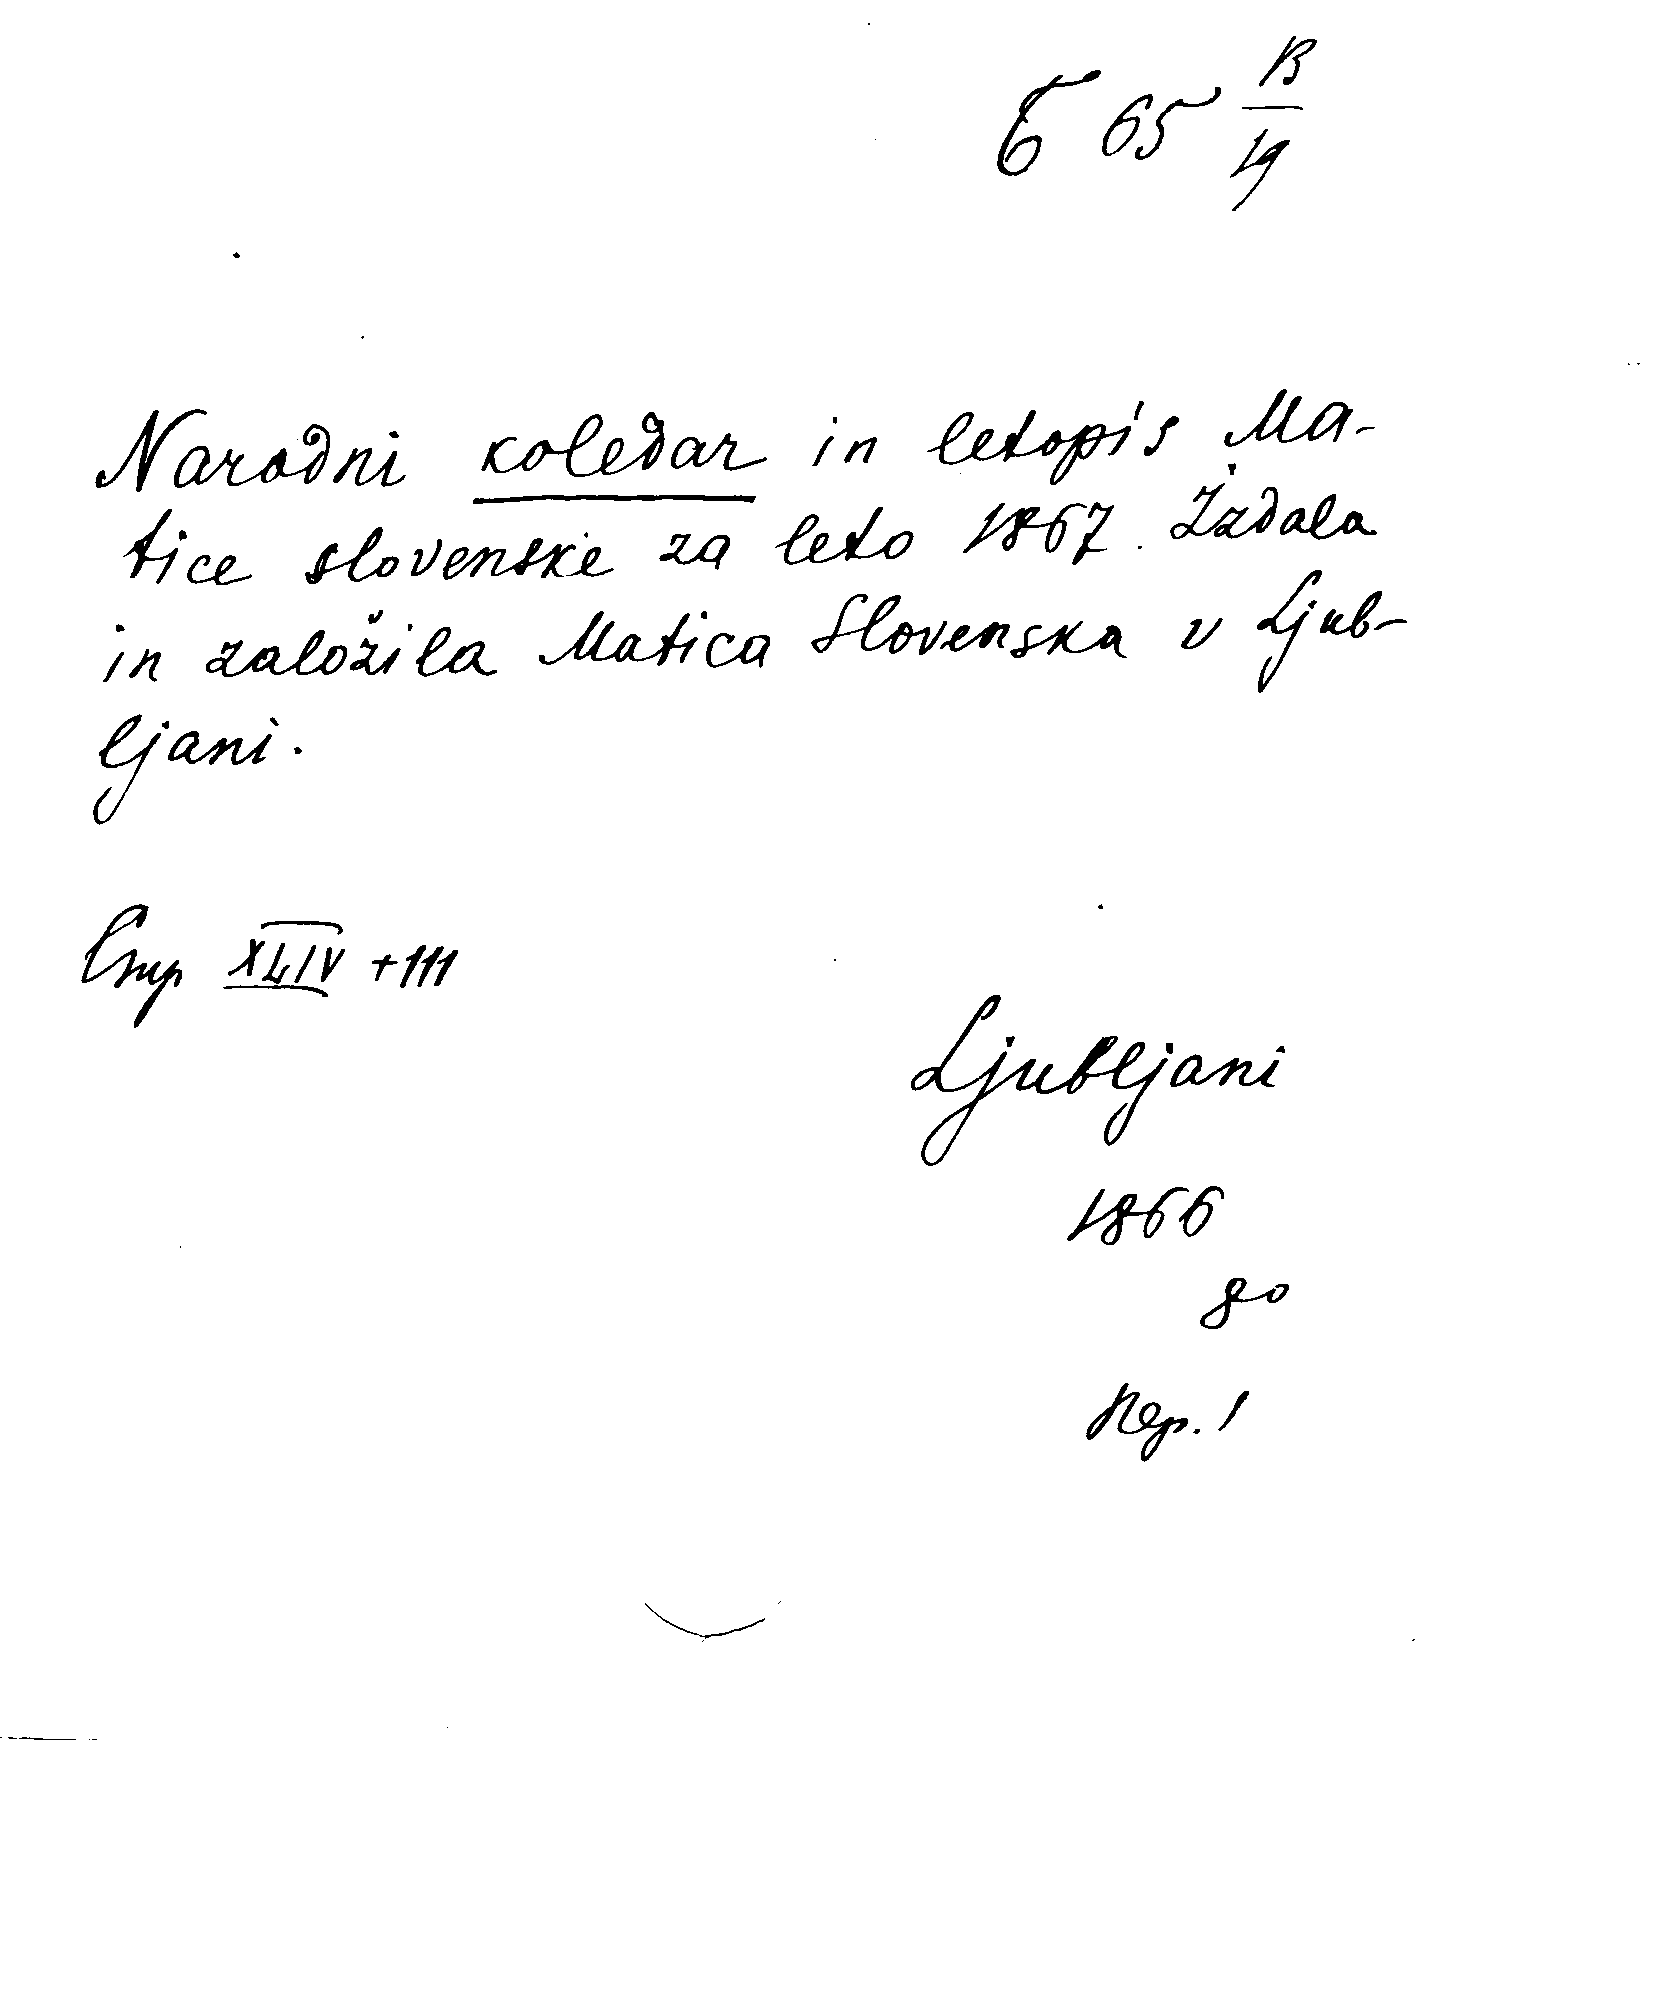 Б 65 B/19
Narodni koledar in letopis Ma-
tice slovenske za leto 1867. Izdala
in založila Matica Slovenska v Ljub-
ljani.
Стр XLIV + 111
Ljubljani
1866
8o
Пер. 1